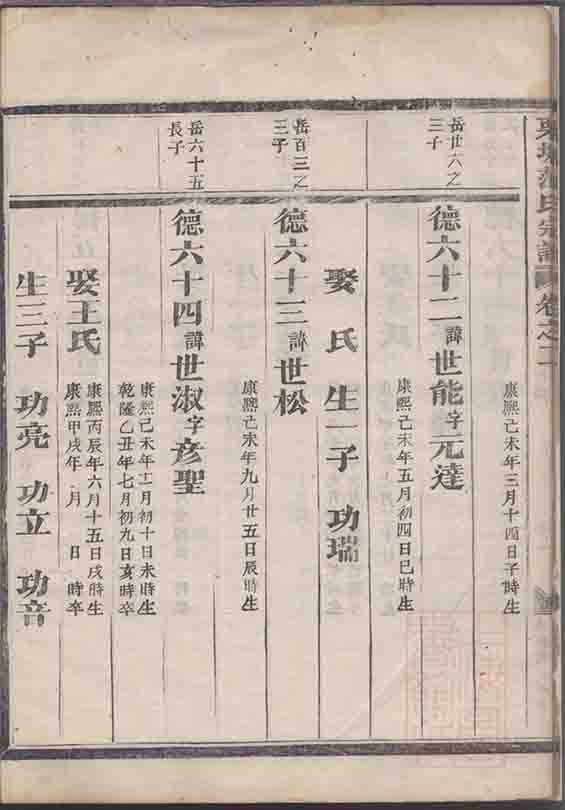 宗譜 卷之二
康熙己未年三月十四日子時生
岳廿六之三子
德六十二諱世能字元達
康熙己未年五月初四日巳時生
娶 氏 生一子 功瑞
岳百三之三子
德六十三諱世松
康熙己未年九月廿五日辰時生
岳六十五長子
德六十四諱世淑字彦聖
康熙己未年十一月初十日未時生
乾隆乙丑年七月初九日亥時卒
娶王氏
康熙丙辰年六月十五日戌時生
康熙甲戌年 月 日 時卒
生三子 功亮 功立 功音